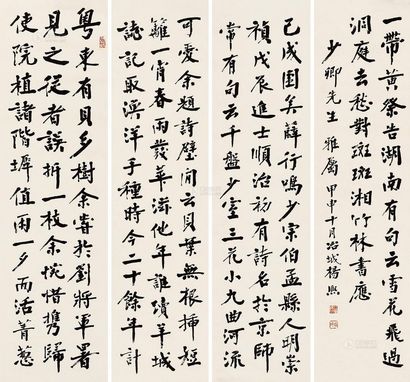 粤東有貝多樹余嘗於劉將軍署
見之從者誤折一枝余惋惜携歸
使院植諸階墀值雨一夕而活菁蔥
可愛余題詩壁間云貝葉無根插短
籬一宵春雨發華滋他年誰續羊城
誌記取漁洋子種時今二十餘年計
已成圍矣薛行鳴少宗伯孟縣人明崇
禎戊辰進士順治初有詩名於京師
常有句云千盤少室三花小九曲河流
一帶黄祭告湖南有句云雪花飛過
洞庭去愁對斑斑湘竹林書應
少卿先生雅屬甲申十月冶城楊熙